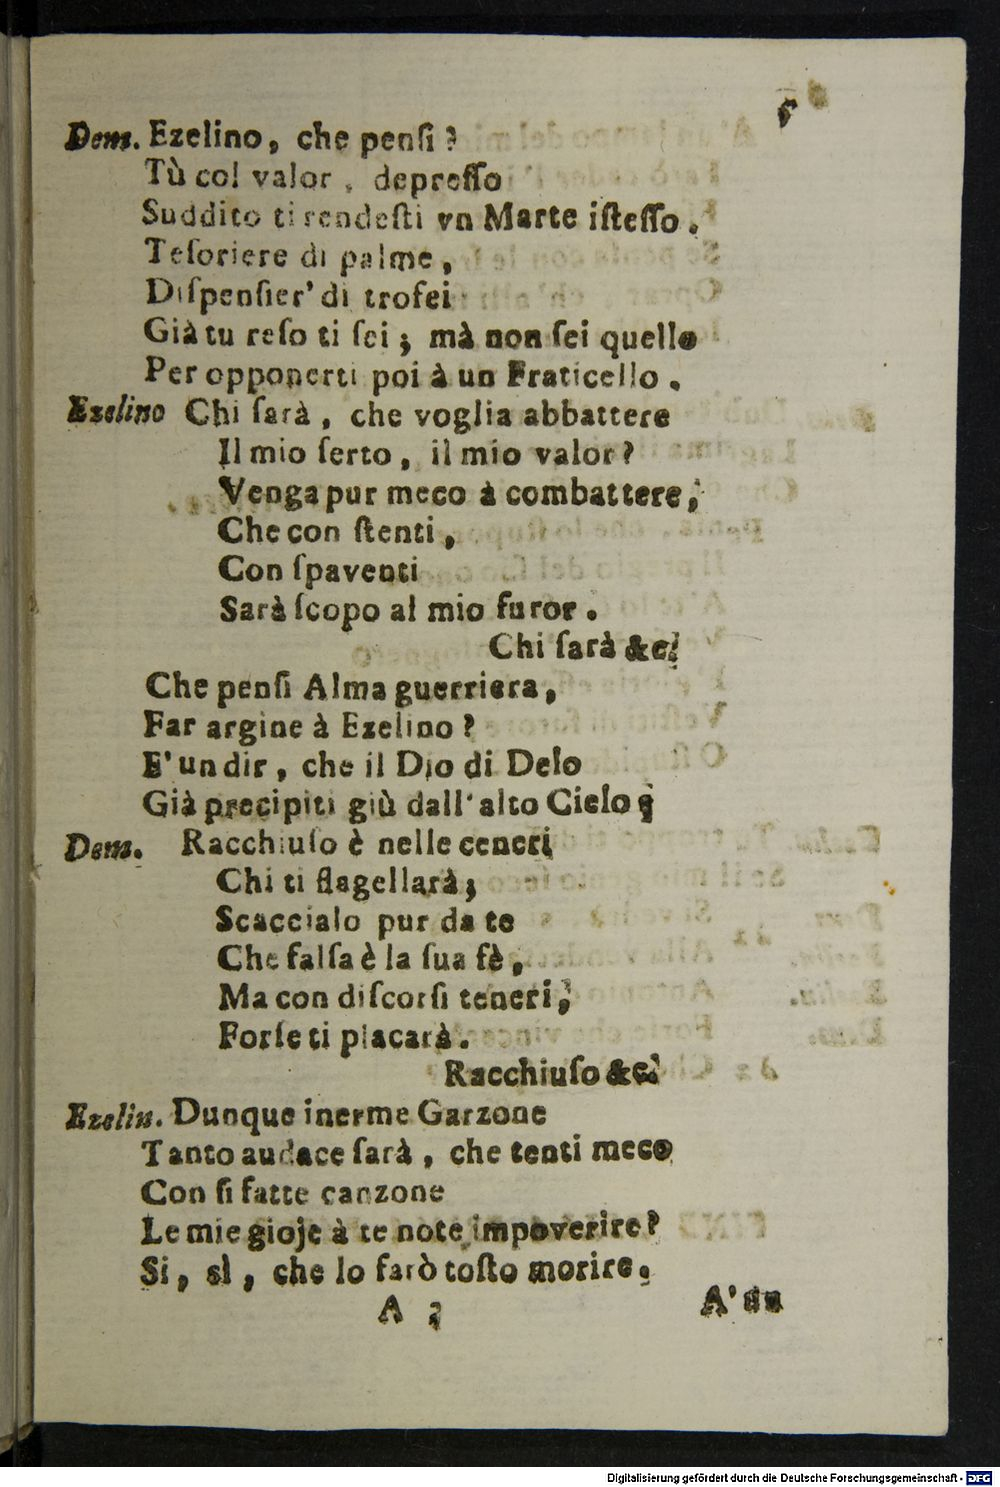 5
Dem. Ezelino, che penſi?
Tù col valor, depreſſo
Suddito ti rendeſti vn Marte iſteſſo.
Teſoriere di palme,
Diſpenſier' di trofei
Già tu reſo ti ſei; mà non ſei quello
Per opponerti poi à un Fraticello.
Ezelino Chi ſarà, che voglia abbattere
Il mio ſerto, il mio valor?
Venga pur meco à combattere,
Che con ſtenti,
Con ſpaventi
Sarà ſcopo al mio furor.
Chi ſarà &c.
Che penſi Alma guerriera,
Far argine à Ezelino?
E' un dir, che il Dio di Delo
Già precipiti giù dall' alto Cielo;
Dem. Racchiuſo è nelle ceneri
Chi ti flagellarà;
Scaccialo pur da te
Che falſa è la ſua fè,
Ma con diſcorſi teneri,
Forſe ti placarà.
Racchiuſo &c.
Ezelin. Dunque inerme Garzone
Tanto audace ſarà, che tenti meco
Con ſi fatte canzone
Le mie gioje à te note impoverire?
Si, sì, che lo farò toſto morire.
A 3 A' un
Digitalisierung gefördert durch die Deutsche Forschungsgemeinschaft - DFG